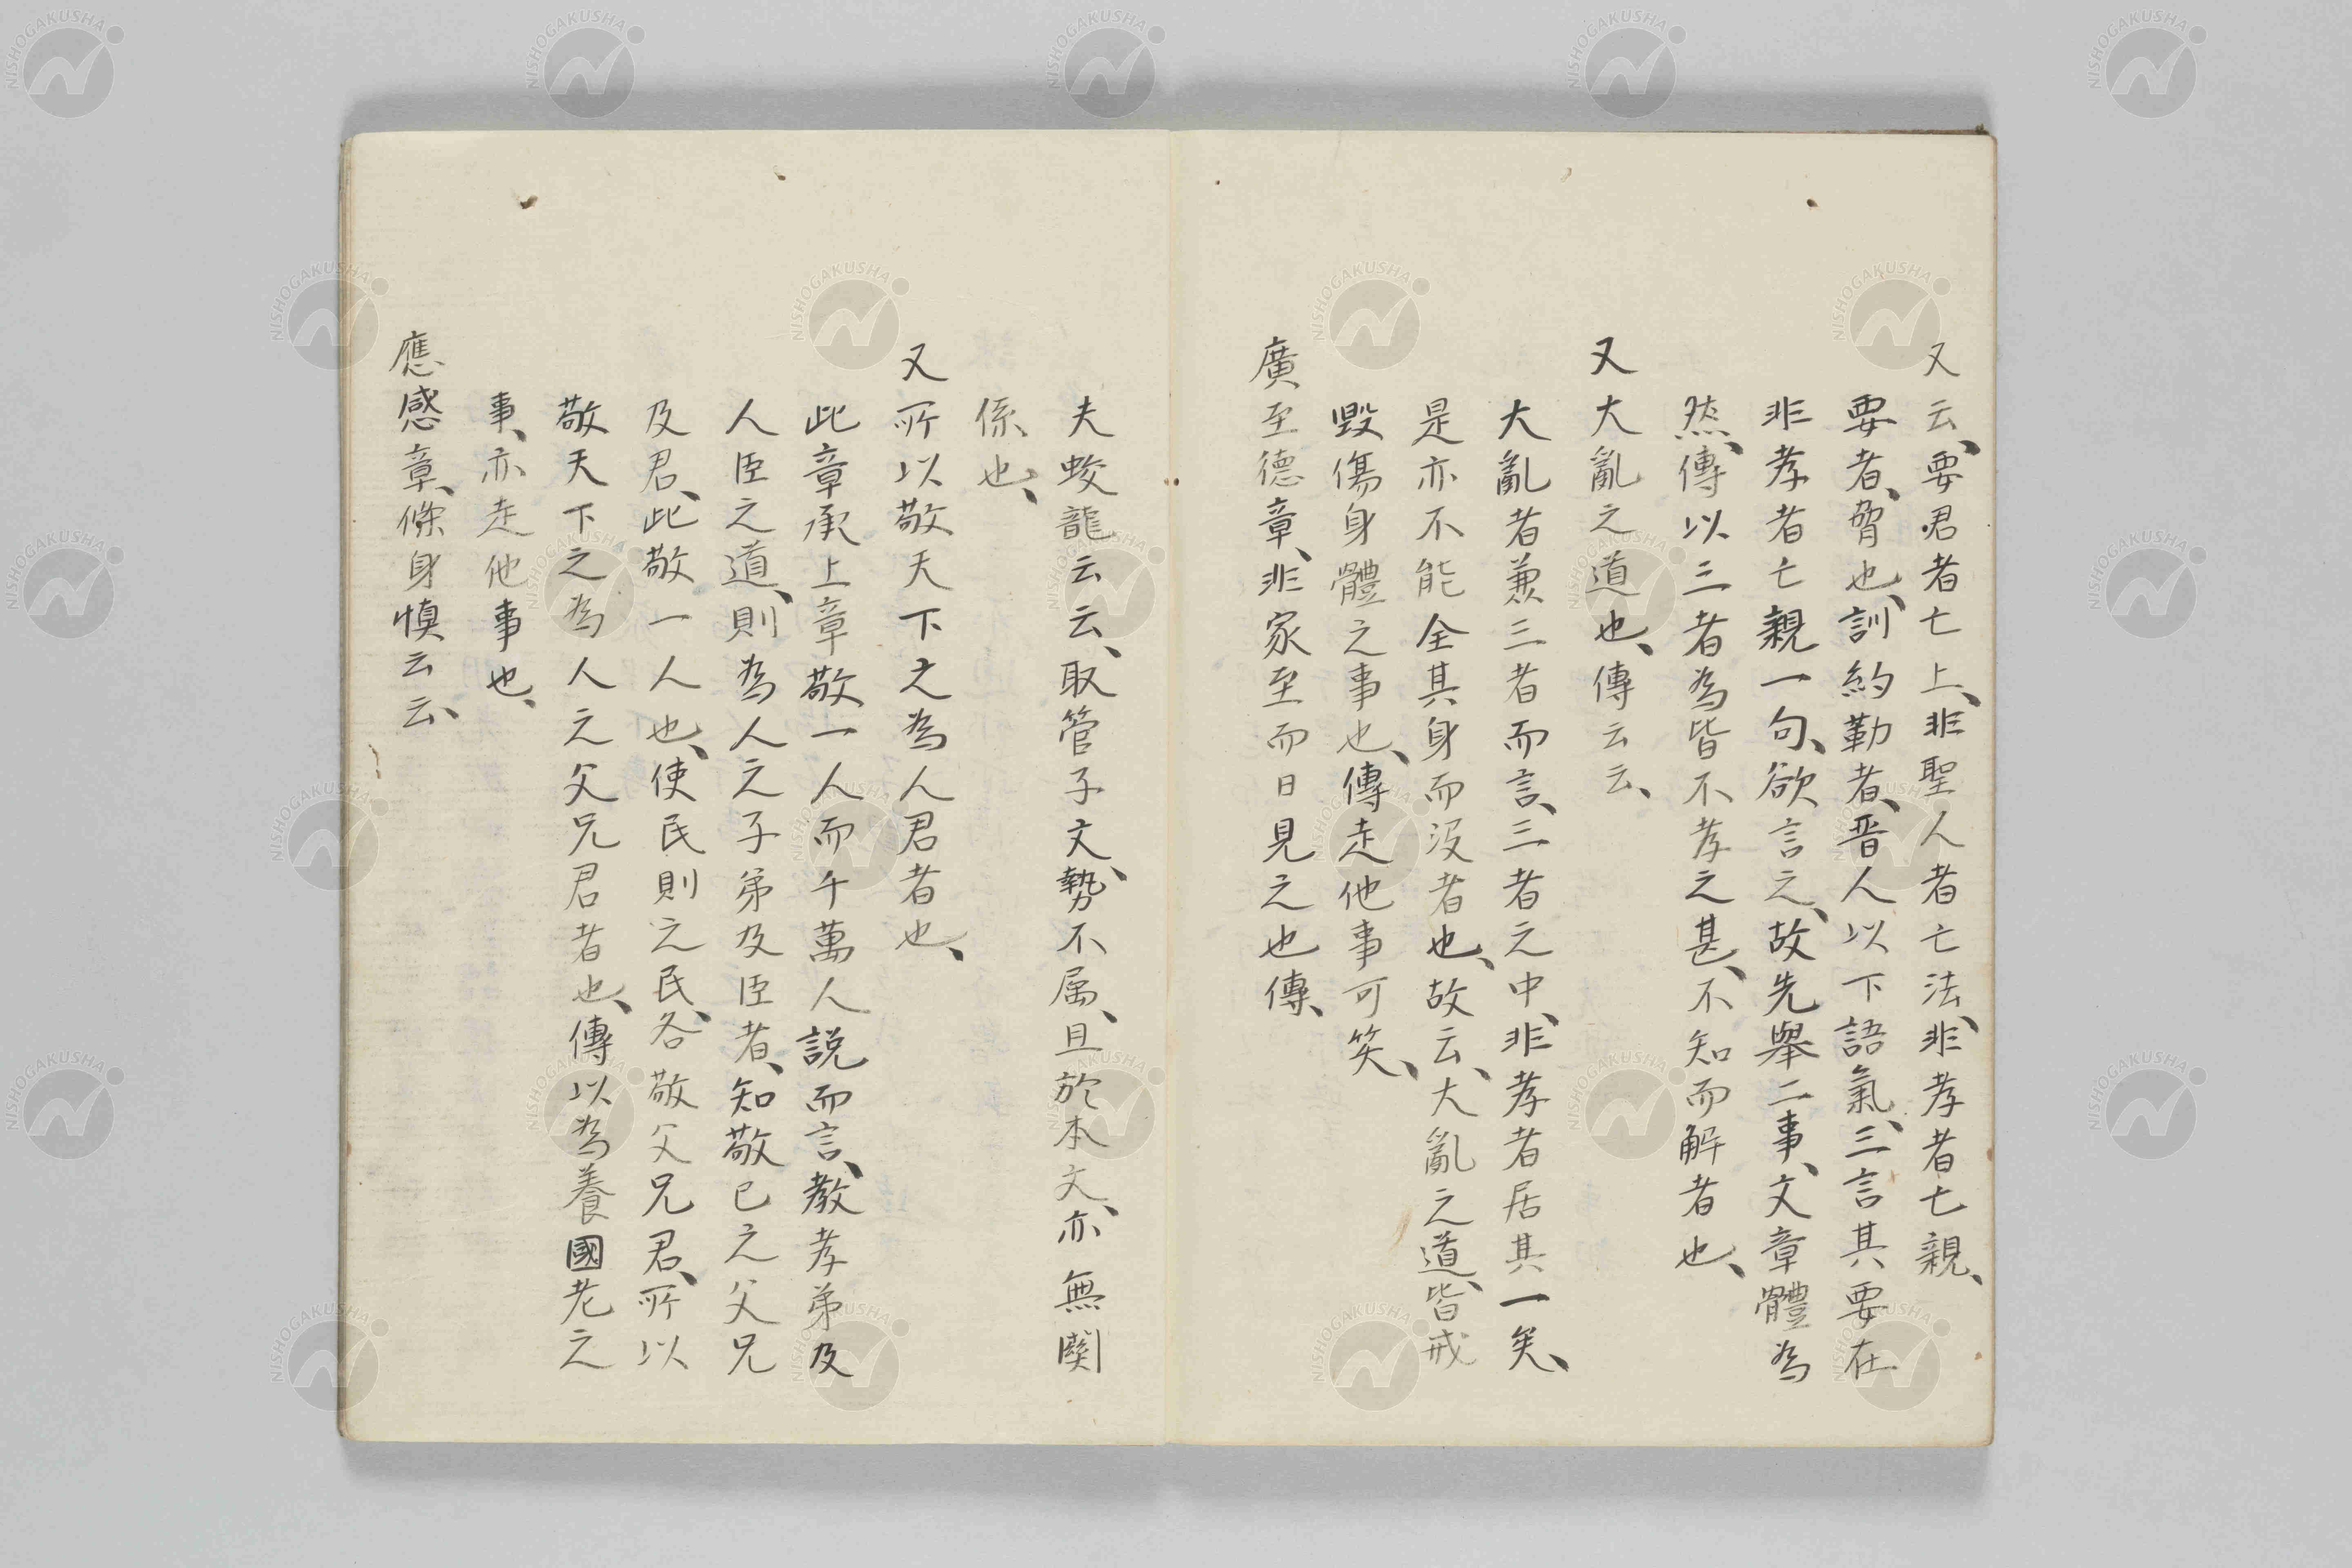 又云、要君者亡上、非聖人者亡法、非孝者亡親、
要者、脅也、訓約勒者、晋人以下語氣、三言其要在
非孝者亡親一句、欲言之、故先舉二事、文章體為
然、傳以三者為皆不孝之甚、不知而解者也、
又大亂之道也、傳云云、
大亂者兼三者而言、三者之中、非孝者居其一矣、
是亦不能全其身而没者也、故云、大亂之道、皆戒
毀傷身體之事也、傳走他事可笑、
廣至德章、非家至而日見之也傳、
夫蛟龍云云、取管子文、勢不属、且於本文、亦無関
係也、
又所以敬天下之為人君者也、
此章承上章敬一人而千萬人説而言、教孝弟及
人臣之道、則為人之子弟及臣者、知敬己之父兄
及君、此敬一人也、使民則之民、各敬父兄君、所以
敬天下之為人之父兄君者也、傳以為養國老之
事、亦走他事也、
應感章、脩身慎云云、
NISHOGAKUSHA